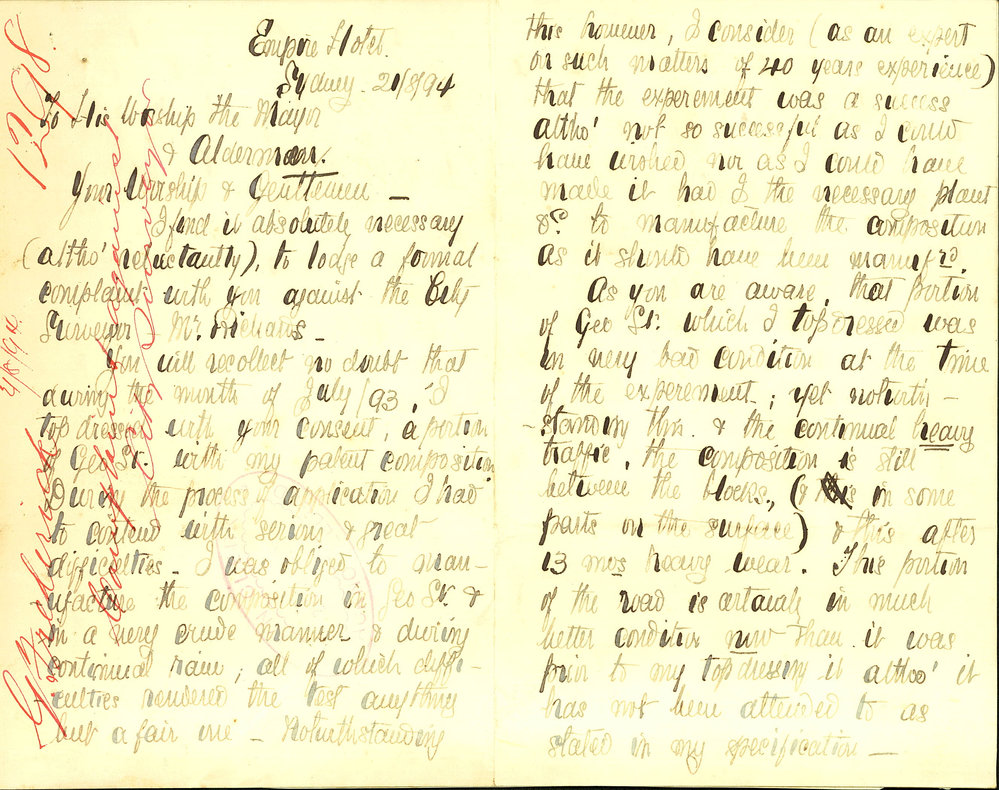 Empire Hotel.
Sydney. 21/8/94
To His Worship the Mayor
& Alderman.
Your Worship & Gentlemen —
I find it absolutely necessary
(altho' reluctantly), to lodge a formal
complaint with you against the City
Surveyor Mr. Richards —
You will recollect no doubt that
during the month of July/93, I
topdressed with your consent, a portion
of Geo St. with my patent composition
During the process of application I had
to contend with serious & great
difficulties — I was obliged to man-
ufacture the composition in Geo St. &
in a very crude manner & during
continual rain; all of which diffi-
culties rendered the test anything
but a fair one — Notwithstanding
this however, I consider (as an expert
on such matters of 40 years experience)
that the experement was a success
altho' not so successful as I could
have wished nor as I could have
made it had I the necessary plant
&c. to manufacture the composition
as it should have been manufrd.
As you are aware, that portion
of Geo St. which I topdressed was
in very bad condition at the time
of the experement; yet notwith-
-standing this & the continual heavy
traffic, the composition is still
between the blocks, (& is in some
parts on the surface) & this after
13 mos heavy wear. This portion
of the road is certainly in much
better condition now than it was
prior to my topdressing it altho' it
has not been attended to as
stated in my specification —
1298
Complaint against
City Surveyor